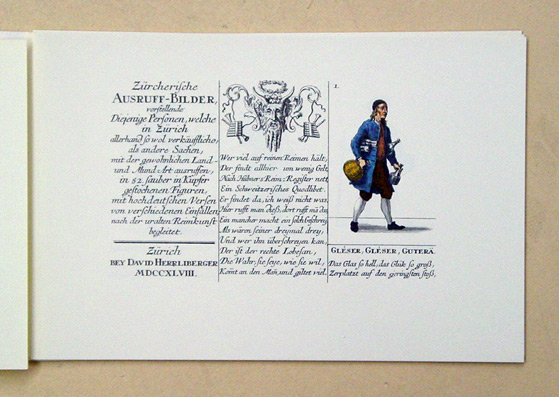 Zürcherische
AUSRUFF-BILDER,
vorstellende
Diejenige Personen, welche
in Zürich
allerhand so wol verkäuffliche,
als andere Sachen,
mit der gewohnlichen Land-
und Mund-Art ausruffen,
in 52. sauber in Kupfer
gestochenen Figuren,
mit hochdeutschen Versen
von verschiedenen Einfällen
nach der uralten Reimkunst
begleitet.
Zürich
BEY DAVID HERRLIBERGER
MDCCXLVIII.
Wer viel auf reinen Reimen hält,
Der findt allhier um wenig Gelt,
Nach Hübners Reim-Register nett
Ein Schweitzerisches Quodlibet.
Er findet da, ich weiß nicht was.
Hier rufft man dieß, dort rufft mā das
Ein mancher macht ein solch Geschrey
Als wären seiner dreymal drey,
Und wer ihn überschreyen kan,
Der ist der rechte Lobesan,
Die Wahr, sie seye, wie sie wil,
Kom̄t an den Mañ, und giltet viel.
1.
GLÉSER, GLÉSER, GUTERÄ.
Das Glas so hell, das Glük so groß,
Zerplatzt auf den geringsten stoß.